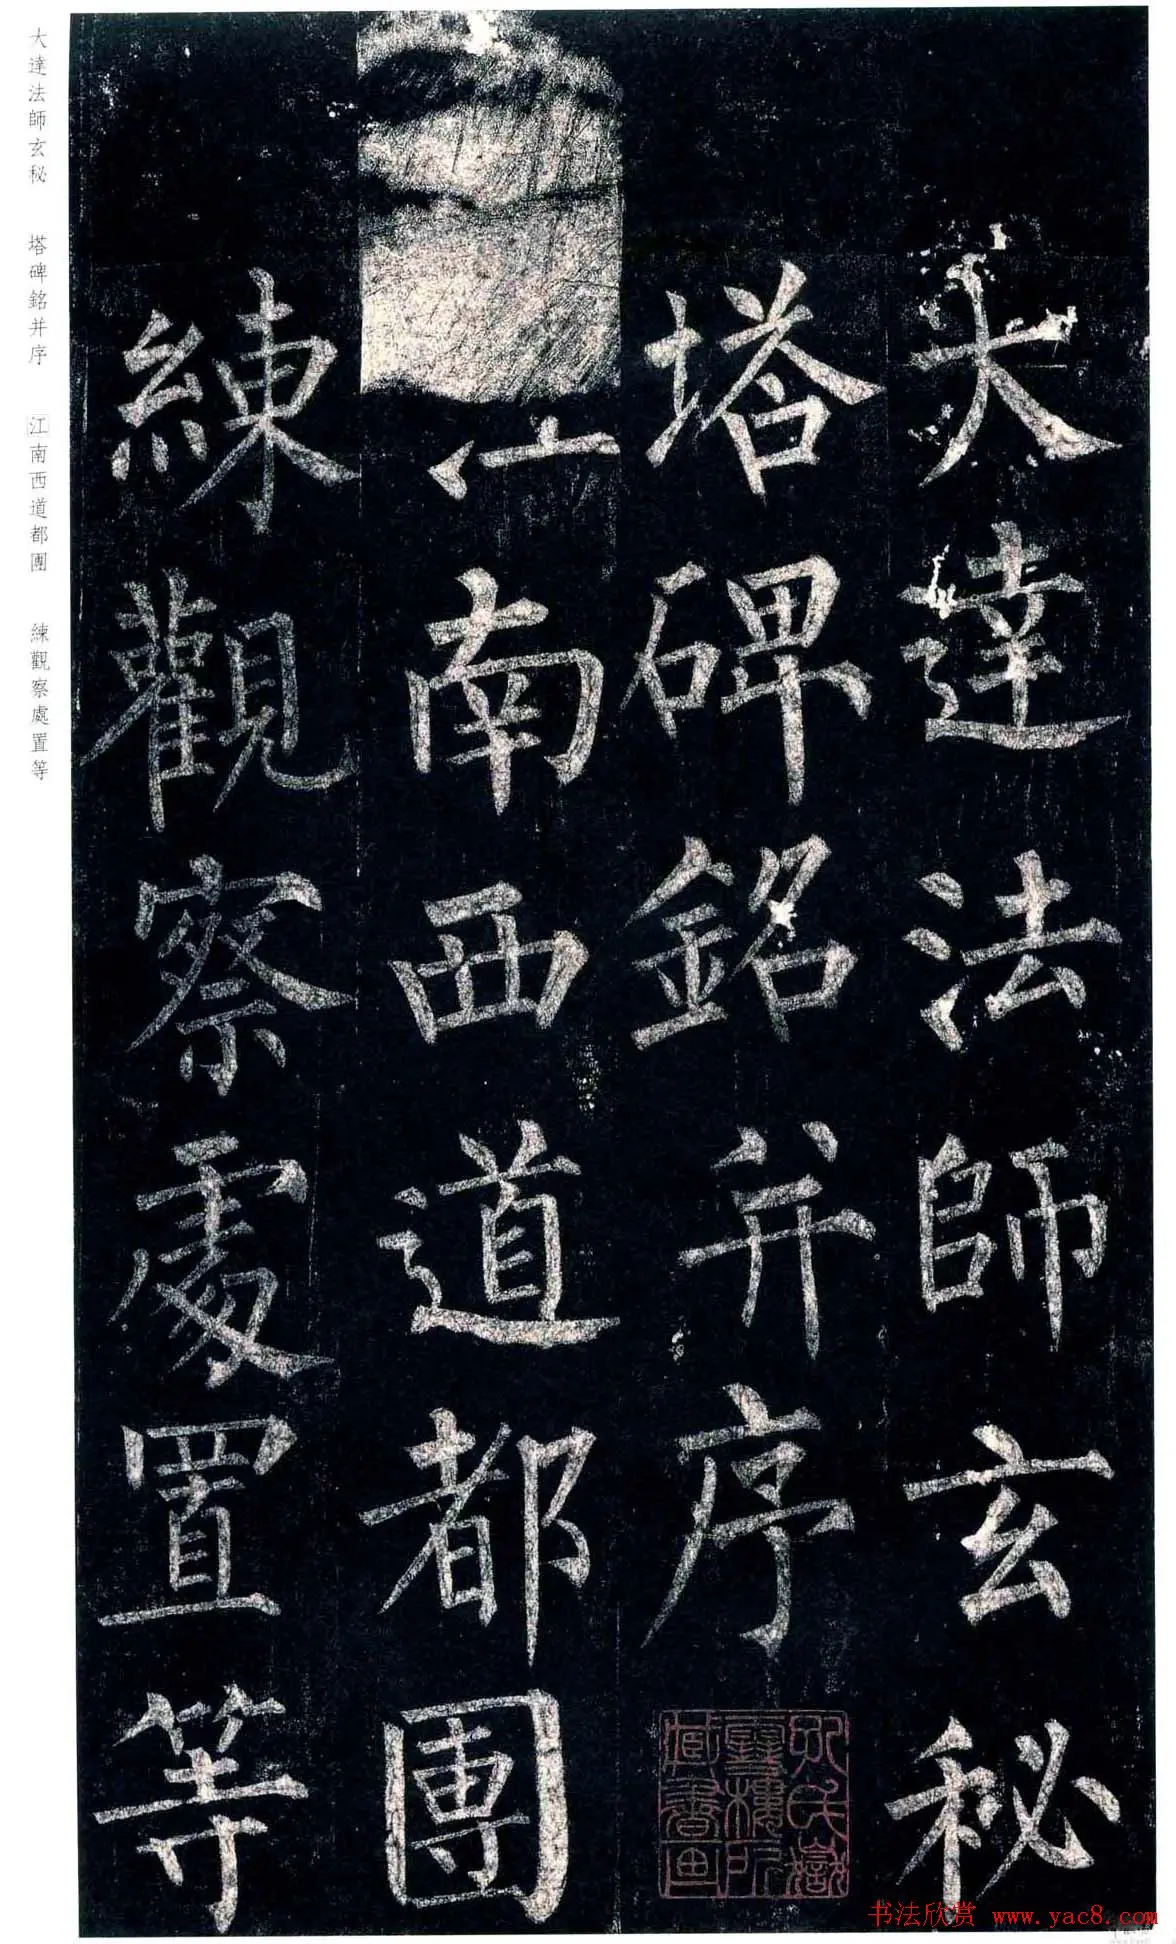 大達法師玄秘
塔碑銘并序
江南西道都團
練觀察處置等
大達法師玄秘 塔碑銘并序 江南西道都團 練觀察處置等
书法欣赏 www.yac8.com